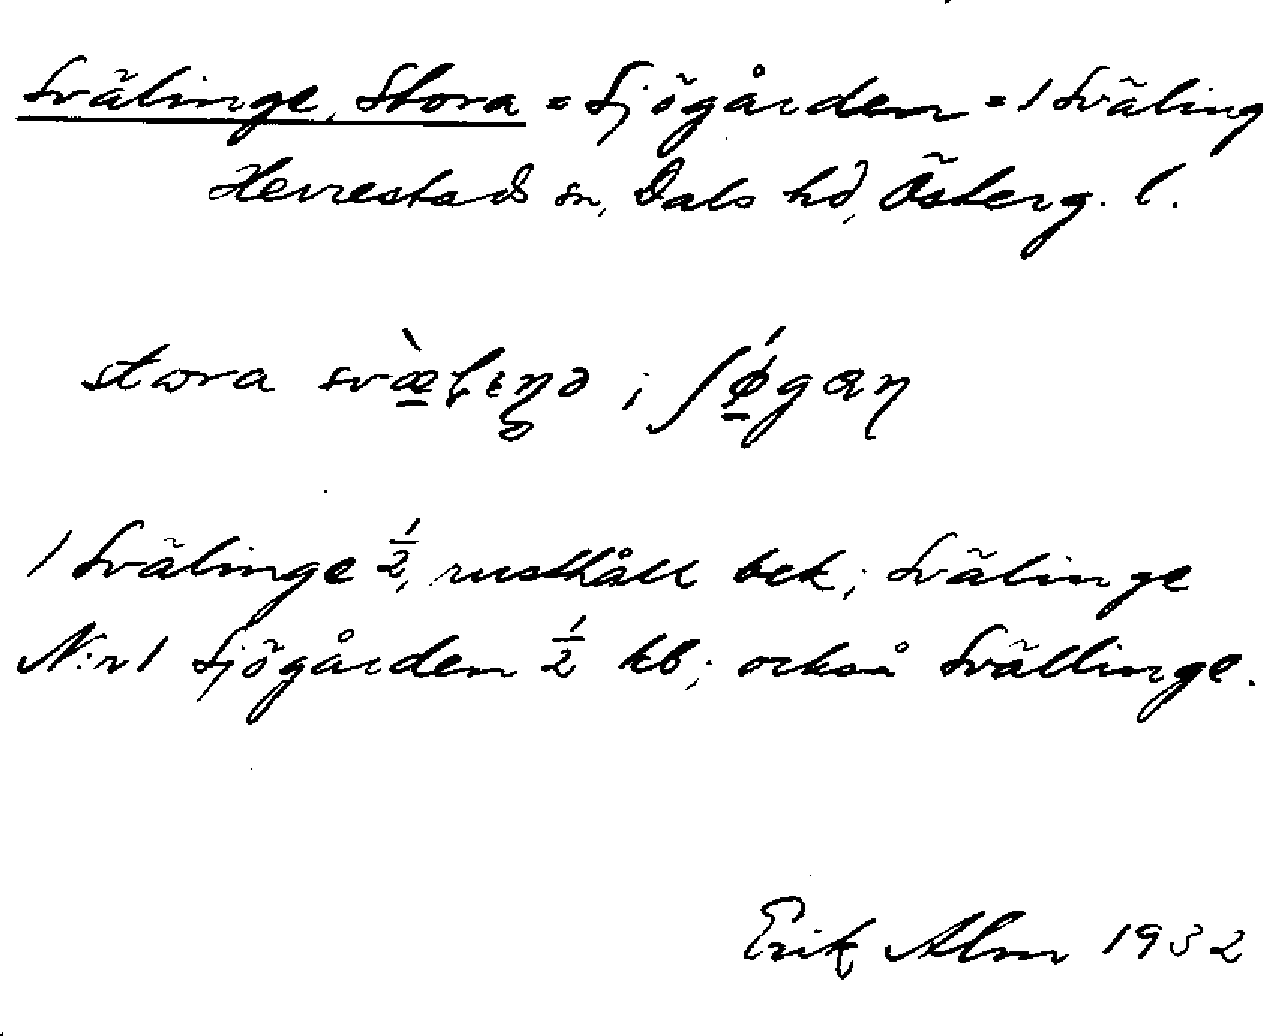 Svälinge, Stora = Sjögården = 1 Sväling
Herrestads sn, Dals hd, Österg. l.
stora
1 Svälinge ½, rusthåll bek; Svälinge
N:r 1 Sjögården ½ kb; också Svällinge.
Erik Alm 1932